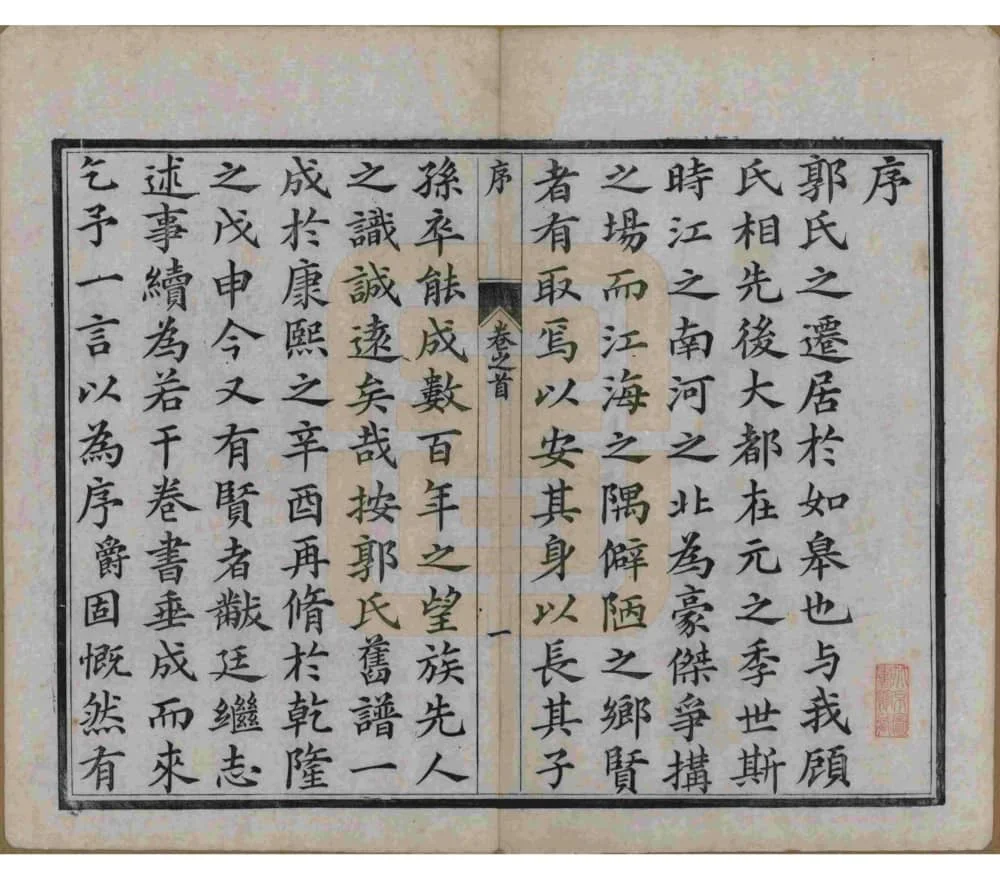 序
郭氏之遷居於如皋也与我顧
氏相先後大都在元之季世斯
時江之南河之北為豪傑爭搆
之場而江海之隅僻陋之鄉賢
者有取焉以安其身以長其子
序 卷之首 一
孫卒能成數百年之望族先人
之識誠遠矣哉按郭氏舊譜一
成於康熙之辛酉再脩於乾隆
之戊申今又有賢者黻廷繼志
述事續為若干卷書垂成而來
乞予一言以為序爵固慨然有